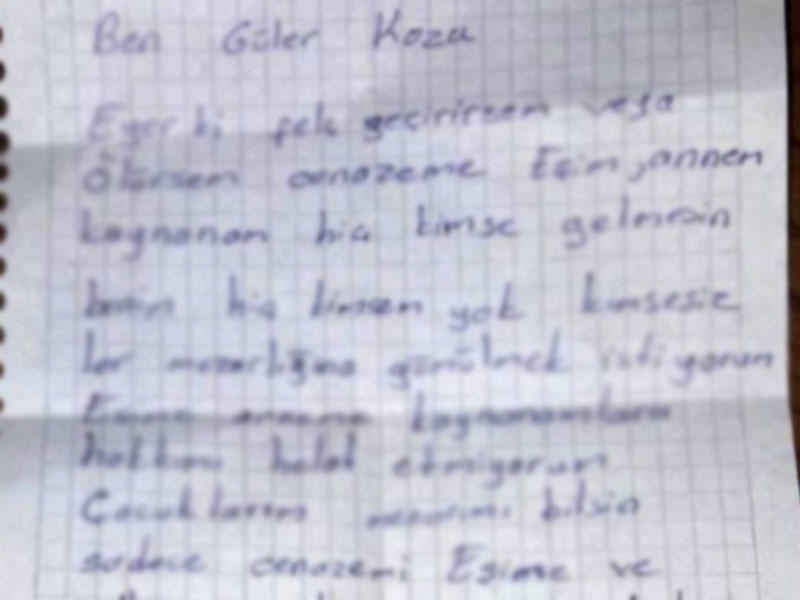 Ben Güler Koza
Eğer ki felç geçirirsem veya
Ölürsem cenazeme Eşim, annem
kaynanam hiç kimse gelmesin
benim hiç kimsem yok kimsesiz
ler mezarlığına gömülmek istiyorum
Eşime anneme kaynanamlara
hakkımı helal etmiyorum
Çocuklarım mezarımı bilsin
sadece cenazemi Eşime ve